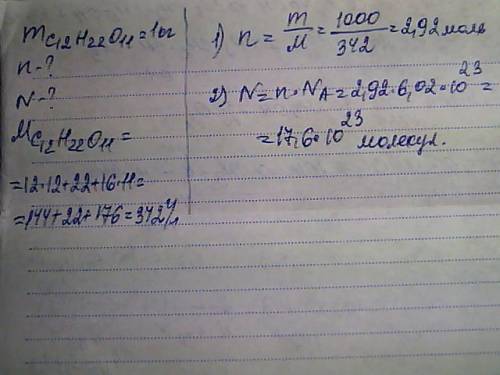 m C12H22O11 = 1кг
n - ?
N - ?
M C12H22O11 =
= 12·12+22+16·11 =
= 144+22+176 = 342 г/м
1) n = m/M = 1000/342 = 2,92 моль
2) N = n · NA = 2,92 · 6,02 · 10^23 =
= 17,6 · 10^23 молекул.